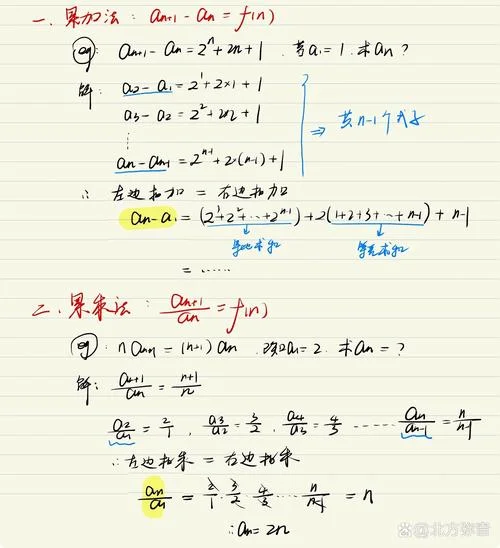 一. 累加法: aₙ₊₁ - aₙ = f(n)
例: aₙ₊₁ - aₙ = 2ⁿ + 2n + 1 . 若a₁ = 1. 求aₙ ?
解: a₂ - a₁ = 2¹ + 2×1 + 1
a₃ - a₂ = 2² + 2×2 + 1
⋮
aₙ - aₙ₋₁ = 2ⁿ⁻¹ + 2·(n-1) + 1
⇒ 共n-1个式子
∴ 左边相加 = 右边相加
aₙ - a₁ = (2¹+2²+…+2ⁿ⁻¹) + 2(1+2+3+…+n-1) + n-1
等比求和 等差求和
= ……
二. 累乘法: aₙ₊₁/aₙ = f(n)
例: n aₙ₊₁ = (n+1) aₙ . a₁ = 2. 求aₙ = ?
解: aₙ₊₁/aₙ = (n+1)/n
a₂/a₁ = 2/1 , a₃/a₂ = 3/2 , a₄/a₃ = 4/3 …… aₙ/aₙ₋₁ = n/(n-1)
∴左边相乘 = 右边相乘
aₙ/a₁ = 2/1 · 3/2 · 4/3 … n/(n-1) = n
∴aₙ = 2n
@北方弥音